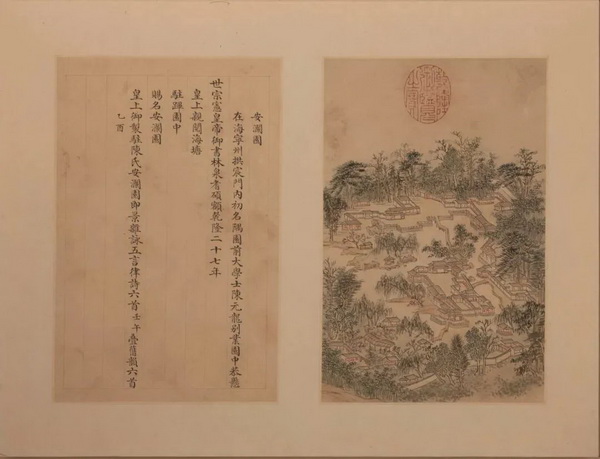 安瀾園
在海寧州拱宸門內初名隅園前大學士陳元龍別業園中恭懸
世宗憲皇帝御書林泉耆碩額乾隆二十七年
皇上親閱海塘
駐蹕園中
賜名安瀾園
皇上御製駐陳氏安瀾園即景雜詠五言律詩六首壬午疊舊韻六首
乙酉